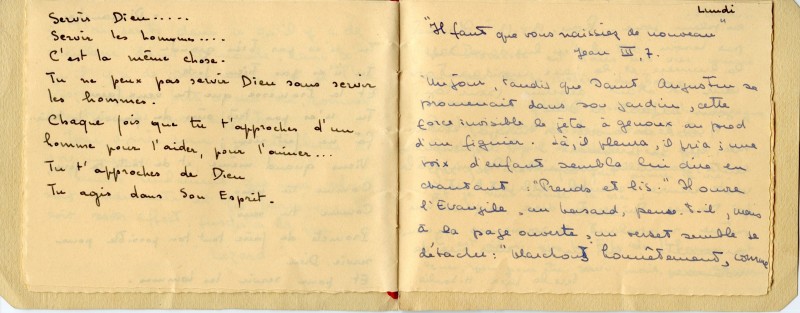 Servir Dieu.....
Servir les hommes....
C'est la même chose.
Tu ne peux pas servir Dieu sans servir
les hommes.
Chaque fois que tu t'approches d'un
homme pour l'aider, pour l'aimer...
Tu t'approches de Dieu
Tu agis dans Son Esprit.
Lundi
"Il faut que vous naissiez de nouveau"
Jean III, 7.
Un jour, tandis que Saint Augustin se
promenait dans son jardin, cette
force invisible le jeta à genoux au pied
d'un figuier. Là, il pleura, il pria ; une
voix d'enfant sembla lui dire en
chantant : "Prends et lis." Il ouvre
l'Evangile, au hasard, pense-t-il, mais
à la page ouverte, un verset semble se
détacher : "Marchons honnêtement, comme